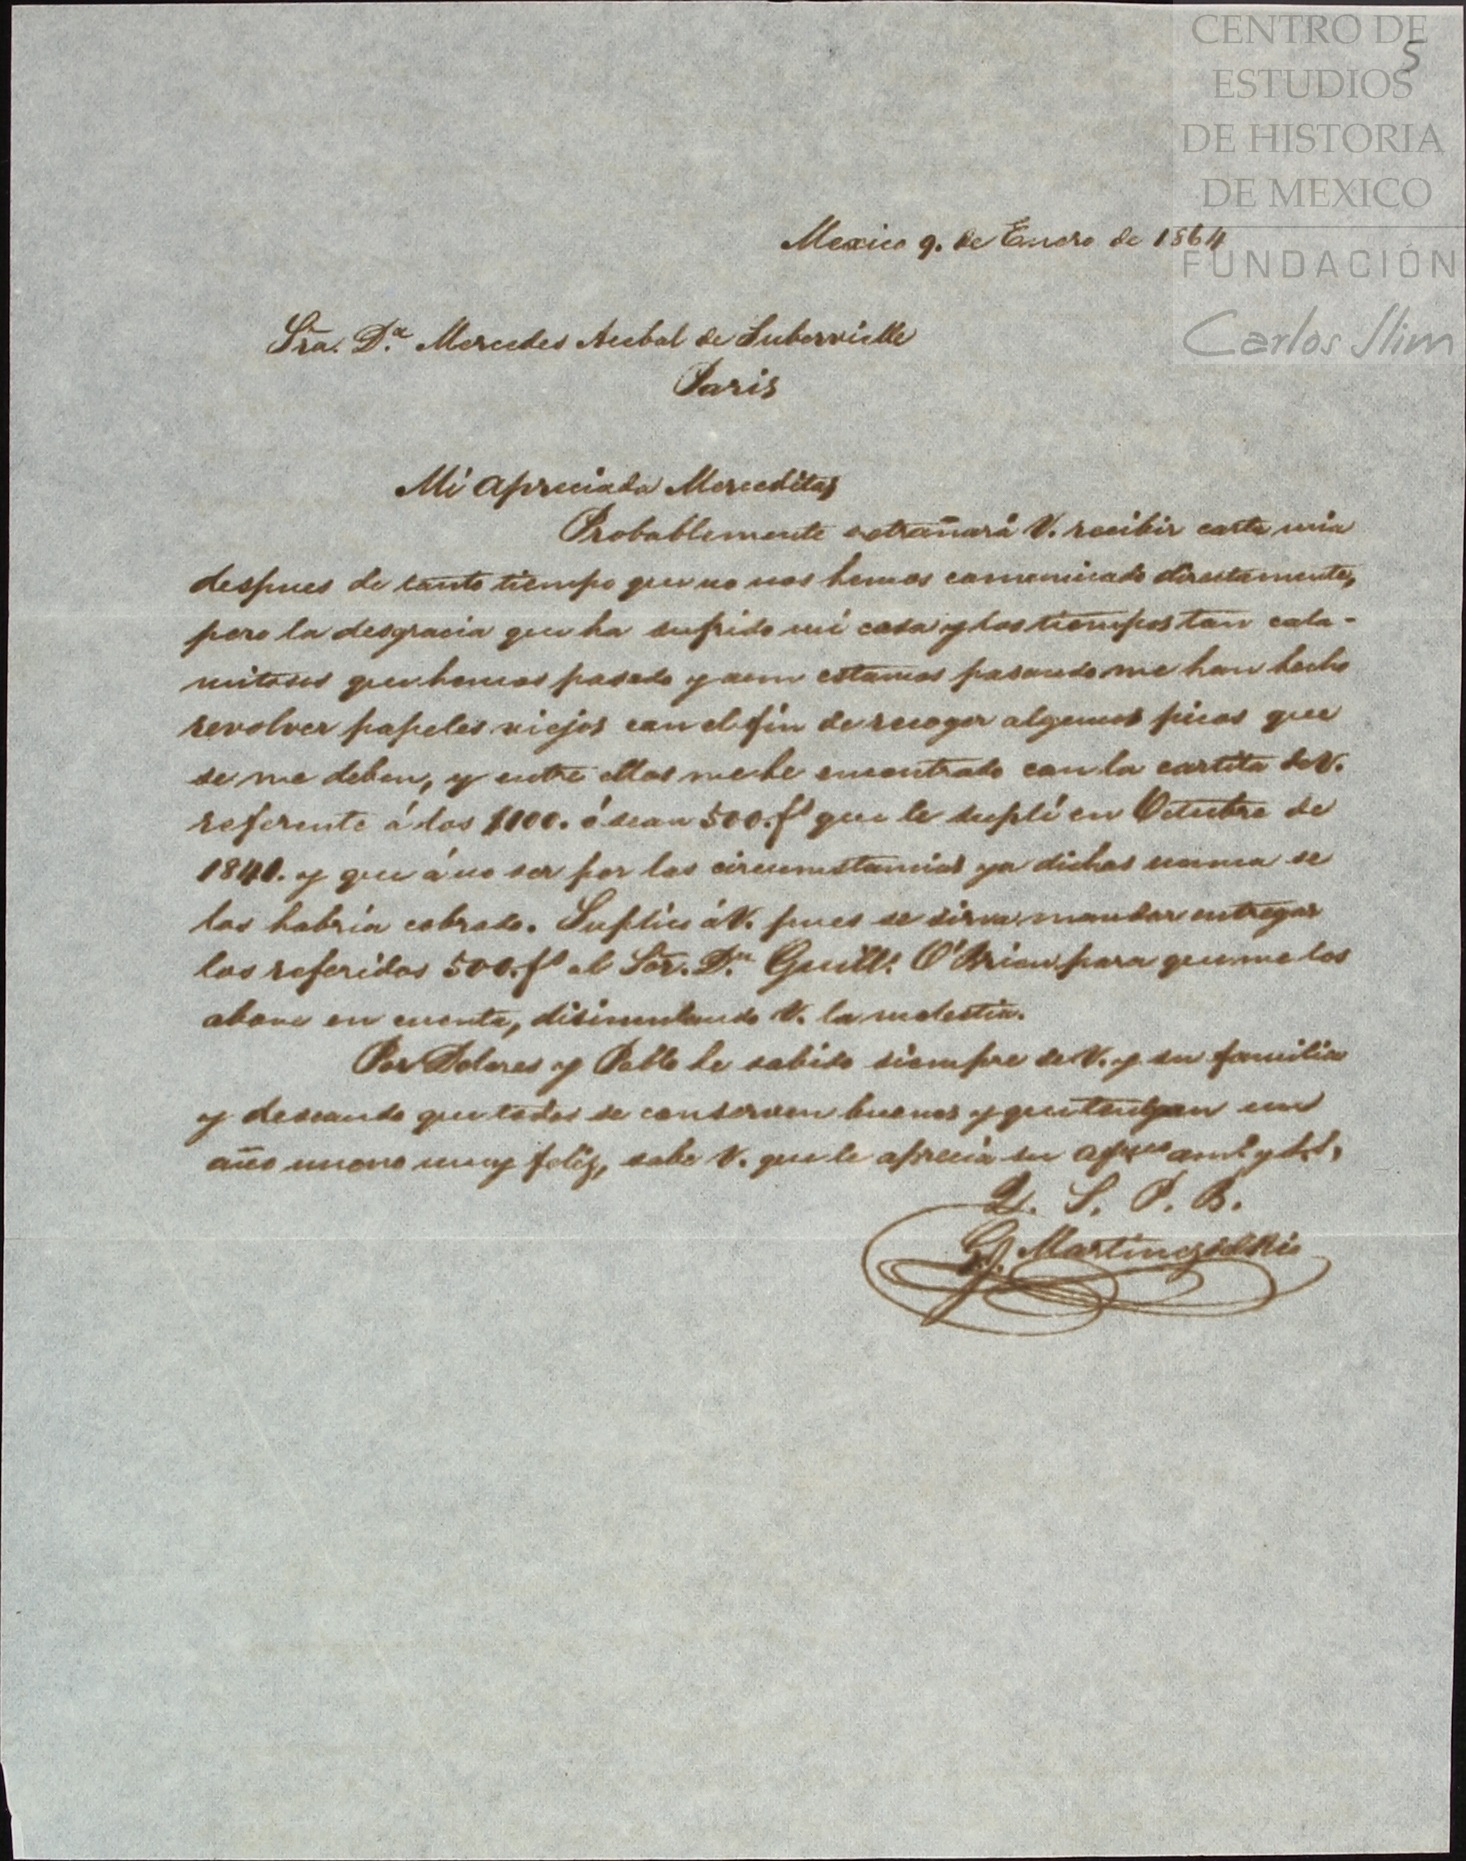 CENTRO DE
ESTUDIOS
DE HISTORIA
DE MEXICO
FUNDACIÓN
Carlos Slim
5
Mexico 9. de Enero de 1864
Sra. D.ª Mercedes Acebal de Suberville
Paris
Mi apreciada Merceditas
Probablemente extrañará V. recibir carta mia
despues de tanto tiempo que no nos hemos comunicado directamente,
pero la desgracia que ha sufrido mi casa y los tiempos tan cala-
mitosos que hemos pasado y aun estamos pasando me han hecho
revolver papeles viejos con el fin de recoger algunos picos que
se me deben, y entre ellos me he encontrado con la cartita de V.
referente á los $100. ó sean 500. fs que le suplí en Octubre de
1841. y que á no ser por las circunstancias ya dichas nunca se
los habria cobrado. Suplico á V. pues se sirva mandar entregar
los referidos 500. fs al Sor. Dn. Guillo. O'Brien para que me los
abone en cuenta, disimulando V. la molestia.
Por Dolores y Pablo he sabido siempre de V. y su familia
y deseando que todos se conserven buenos y que tengan un
año nuevo muy feliz, sabe V. que le aprecia su am.º y S.S.
Q. S. P. B.
G. Martinez del Rio